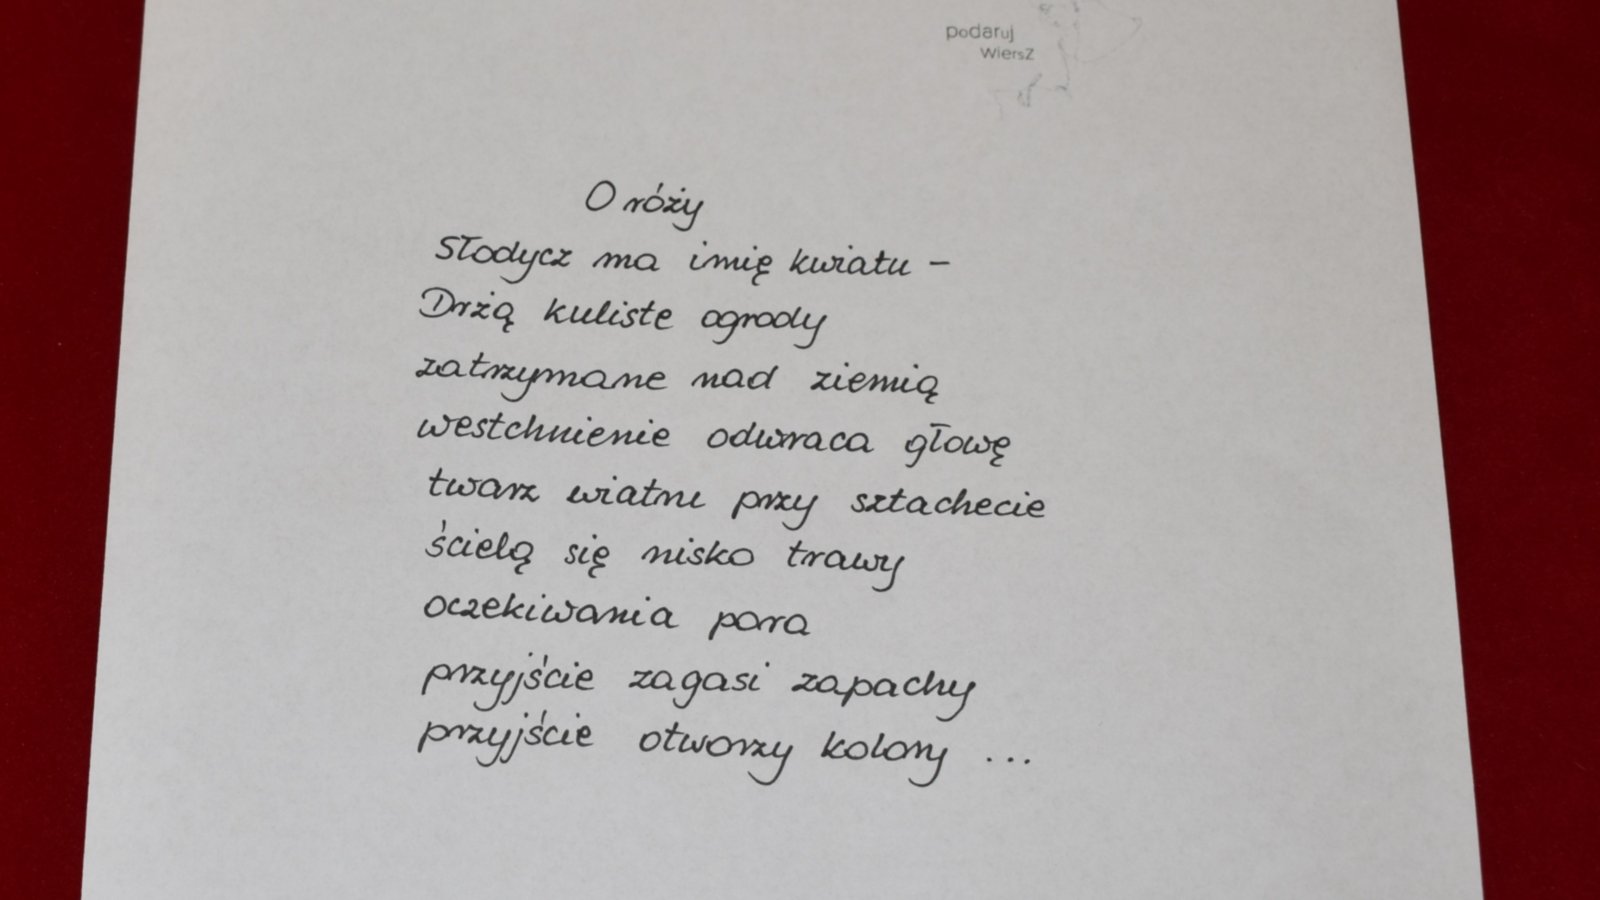 podaruj
wiersz
O róży
Słodycz ma imię kwiatu –
Drżą kuliste ogrody
zatrzymane nad ziemią
westchnienie odwraca głowę
twarz wiatru przy sztachecie
ścielą się nisko trawy
oczekiwania pora
przyjście zagasi zapachy
przyjście otworzy kolory ...